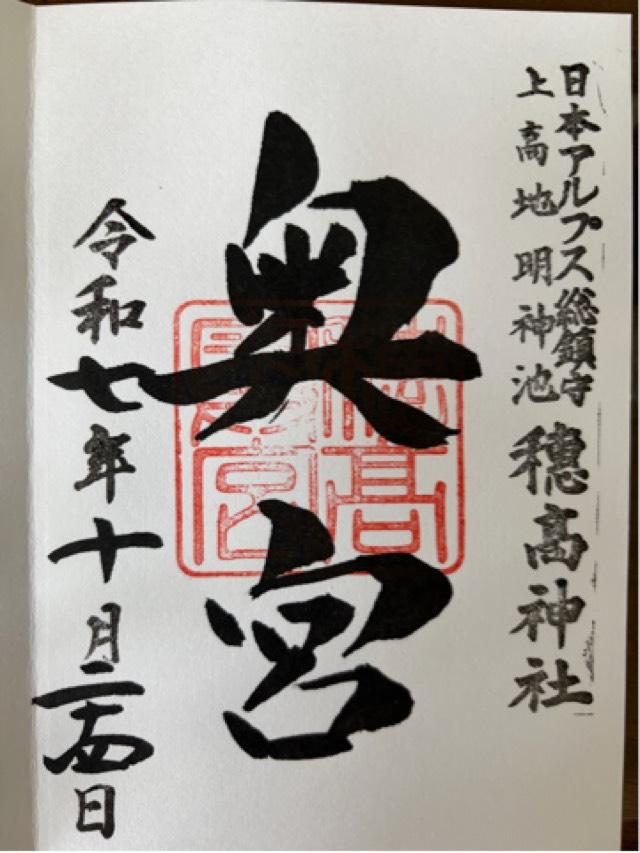 日本アルプス総鎮守
上高地明神池
穗髙神社
奥宮
令和七年十月二十四日